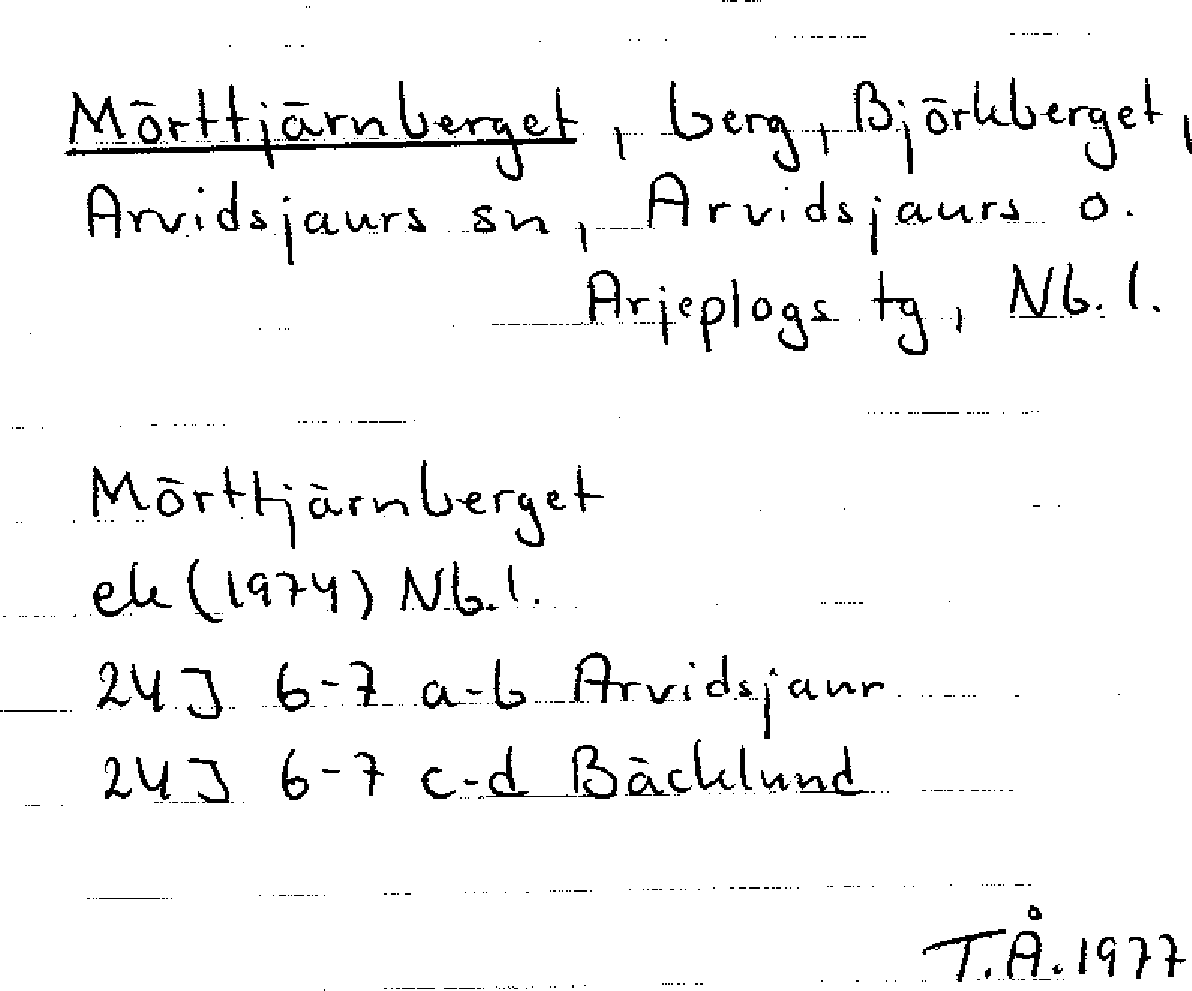 Mörttjärnberget, berg, Björkberget,
Arvidsjaurs sn, Arvidsjaurs o.
Arjeplogs tg, Nb. l.
Mörttjärnberget
ek (1974) Nb. l.
24J 6-7 a-b Arvidsjaur
24J 6-7 c-d Bäcklund
T.Å. 1977